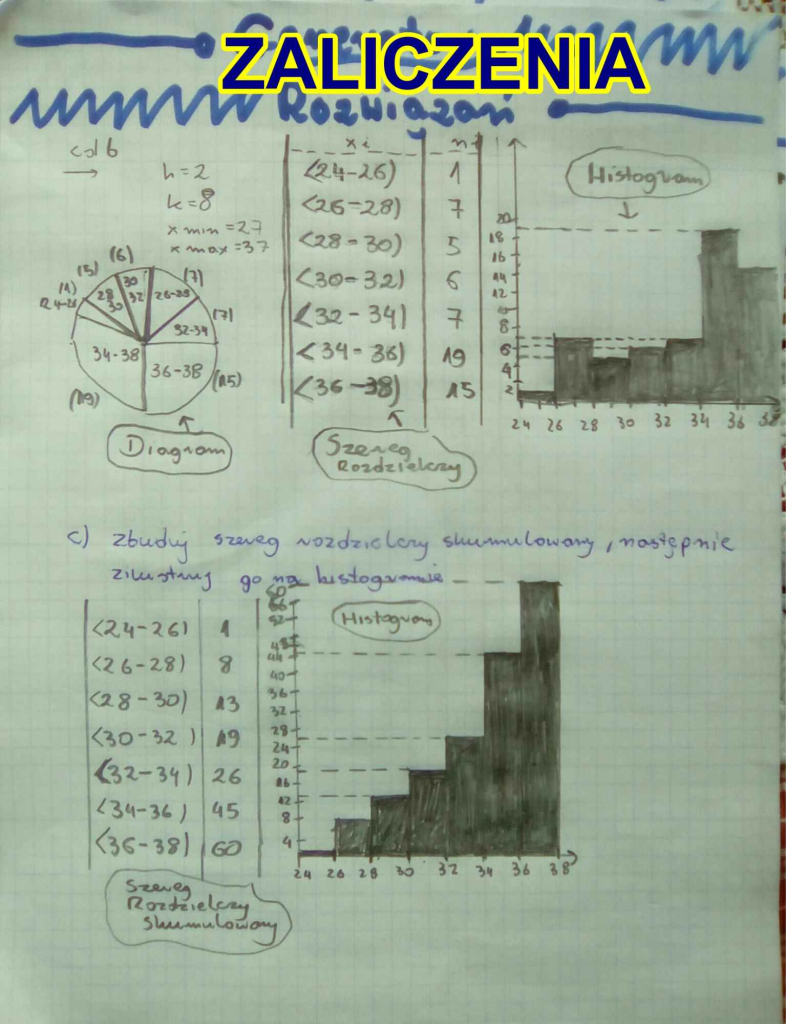 ZALICZENIA
Rozwiązań
cd b
h=2
k=8
x min = 27
x max = 37
xi ni
<24-26) 1
<26-28) 7
<28-30) 5
<30-32) 6
<32-34) 7
<34-36) 19
<36-38) 15
Szereg
Rozdzielczy
(6)
(5)
(1)
24-26
28
30
30
32
(7)
26-28
(7)
32-34
34-38
36-38
(19)
(15)
Diagram
Histogram
20
18
16
14
12
8
6
4
2
24 26 28 30 32 34 36 38
c) zbuduj szereg rozdzielczy skumulowany, następnie
zilustruj go na histogramie
<24-26) 1
<26-28) 8
<28-30) 13
<30-32) 19
<32-34) 26
<34-36) 45
<36-38) 60
Szereg
Rozdzielczy
skumulowany
Histogram
60
52
48
44
40
36
32
28
24
20
16
12
8
4
24 26 28 30 32 34 36 38